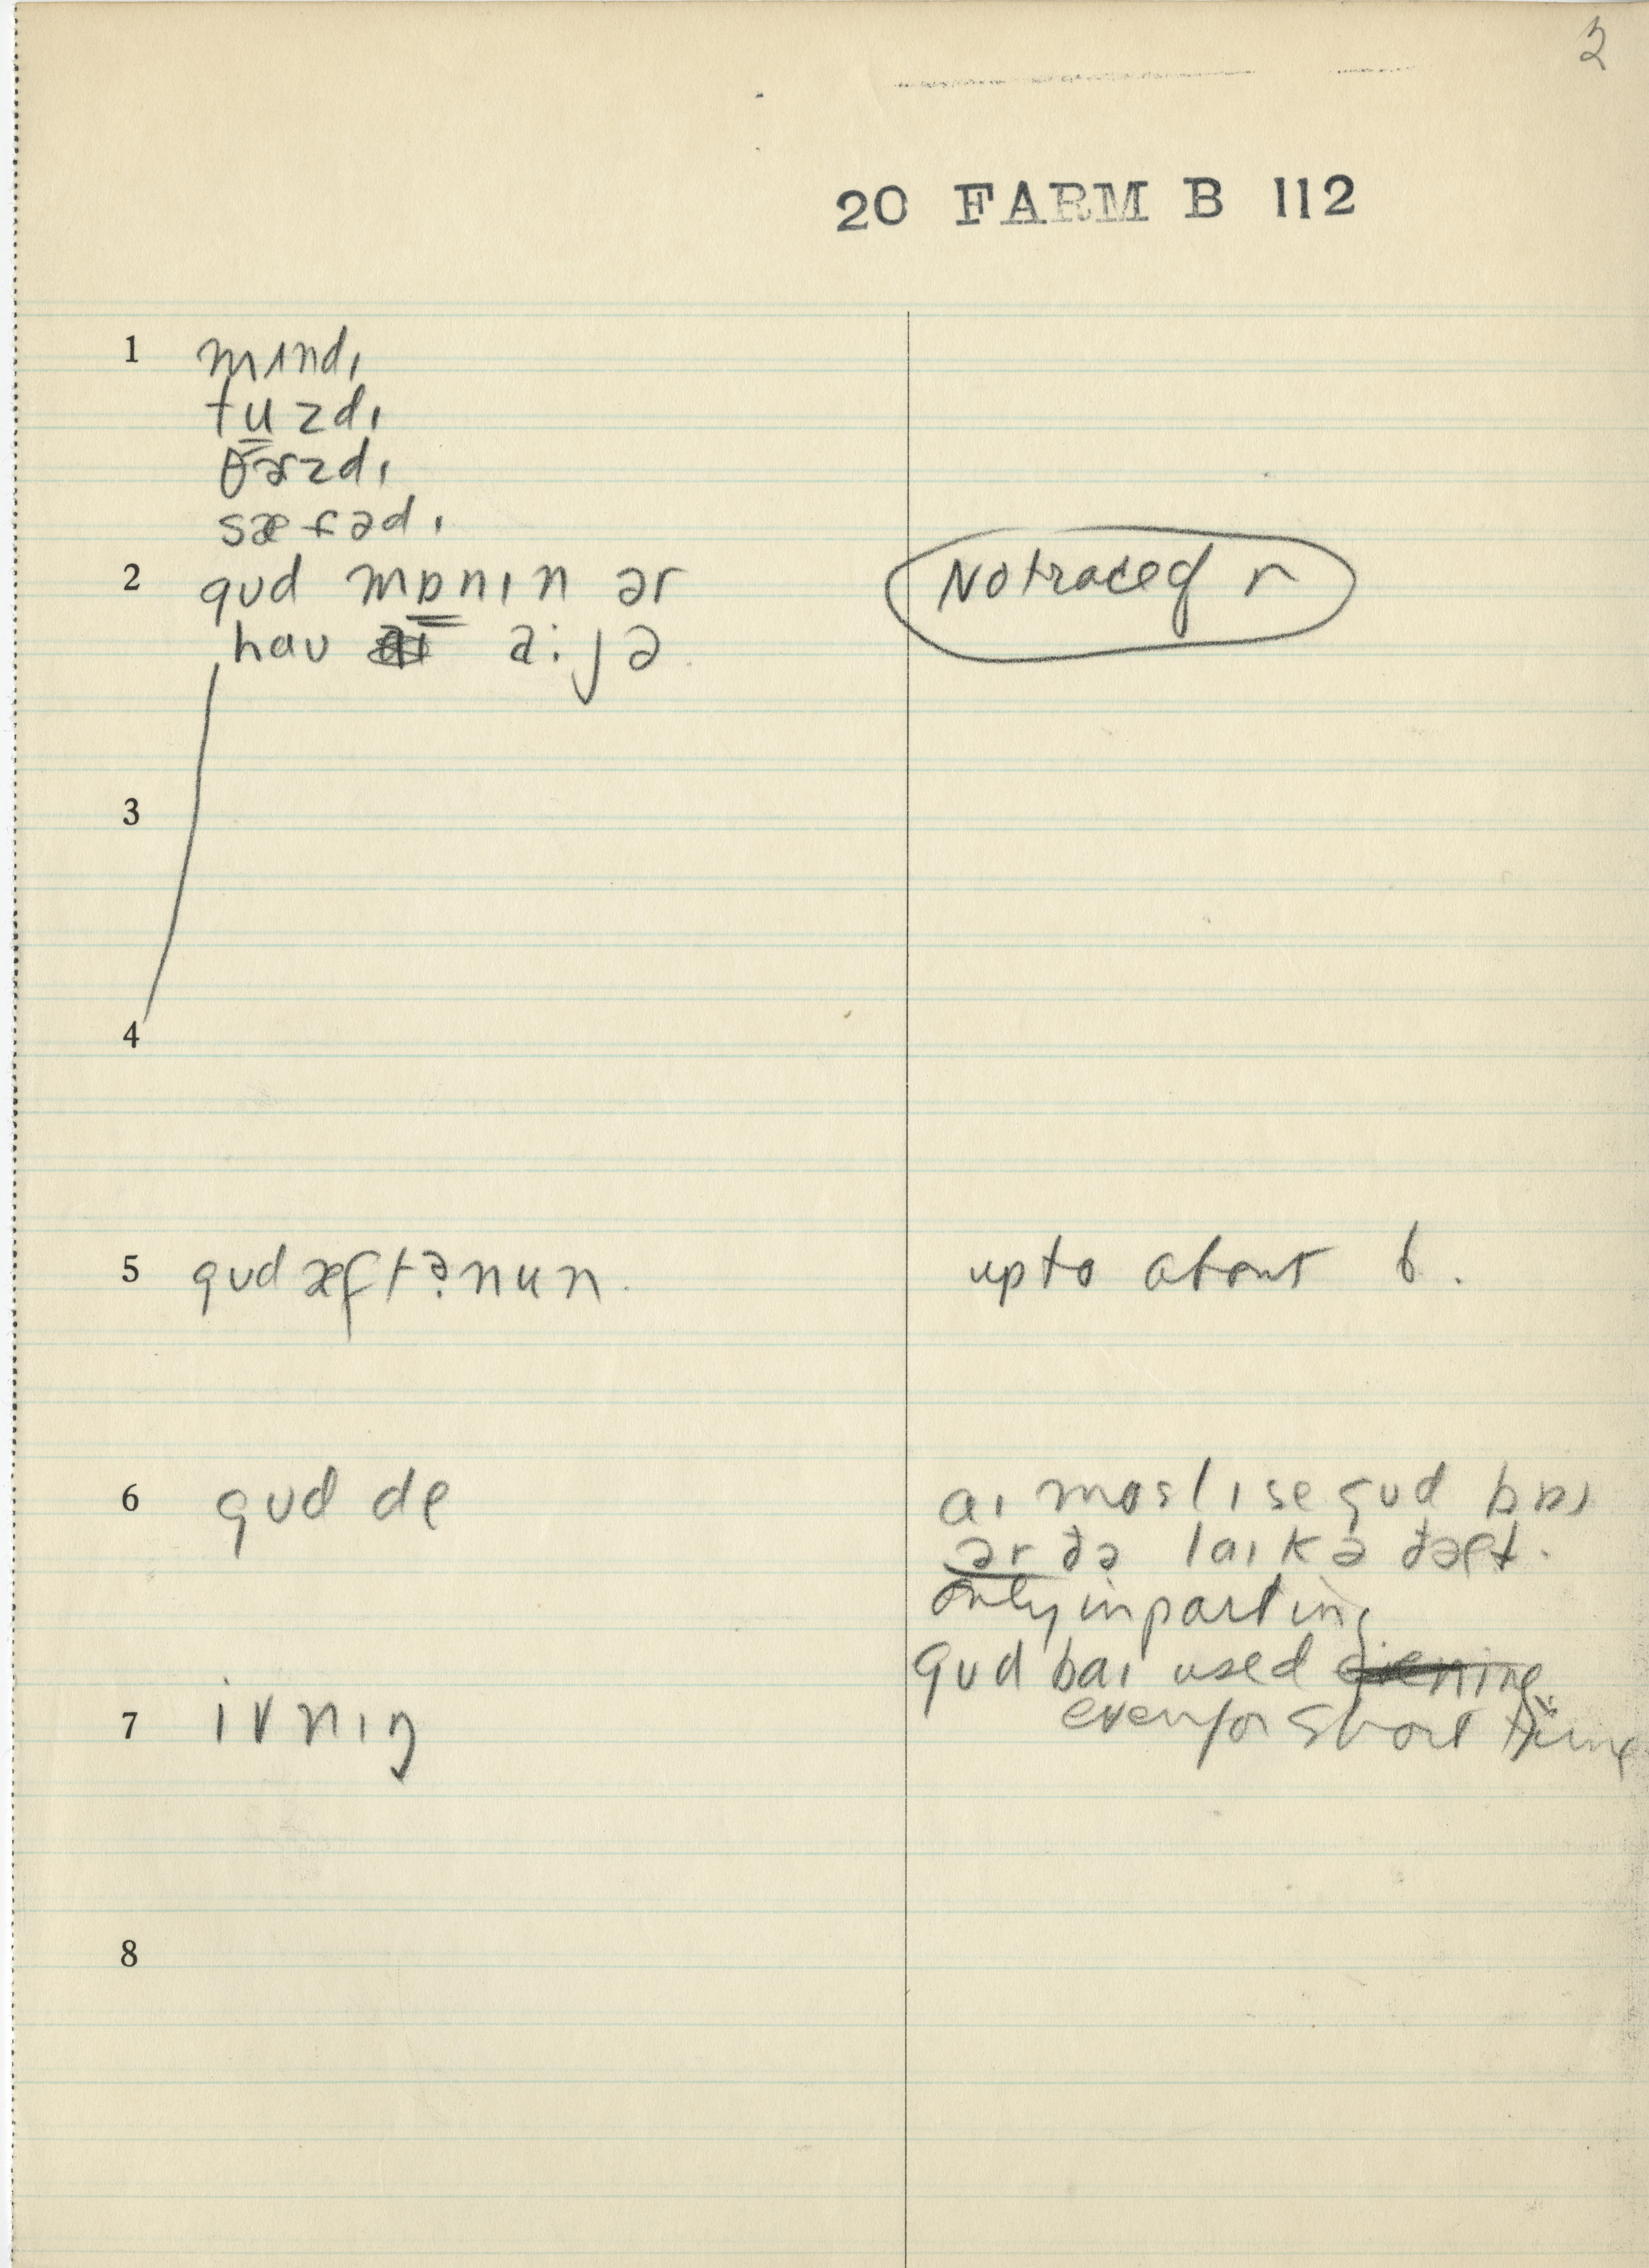 3
20 FARM B 112
1 mɪndɪ
tuzdɪ
θɜzdɪ
sætədɪ
2 gʊd mɒnɪn ər
haʊ a:jə
No trace of r
3
4
5 gʊd æftənun.
up to about 6.
6 gʊd de
aɪ moslɪ se gʊd baɪ
ər ðə laɪk ə ðæt.
only in parting
gʊd baɪ used evening
even for short time
7 ivnɪŋ
8